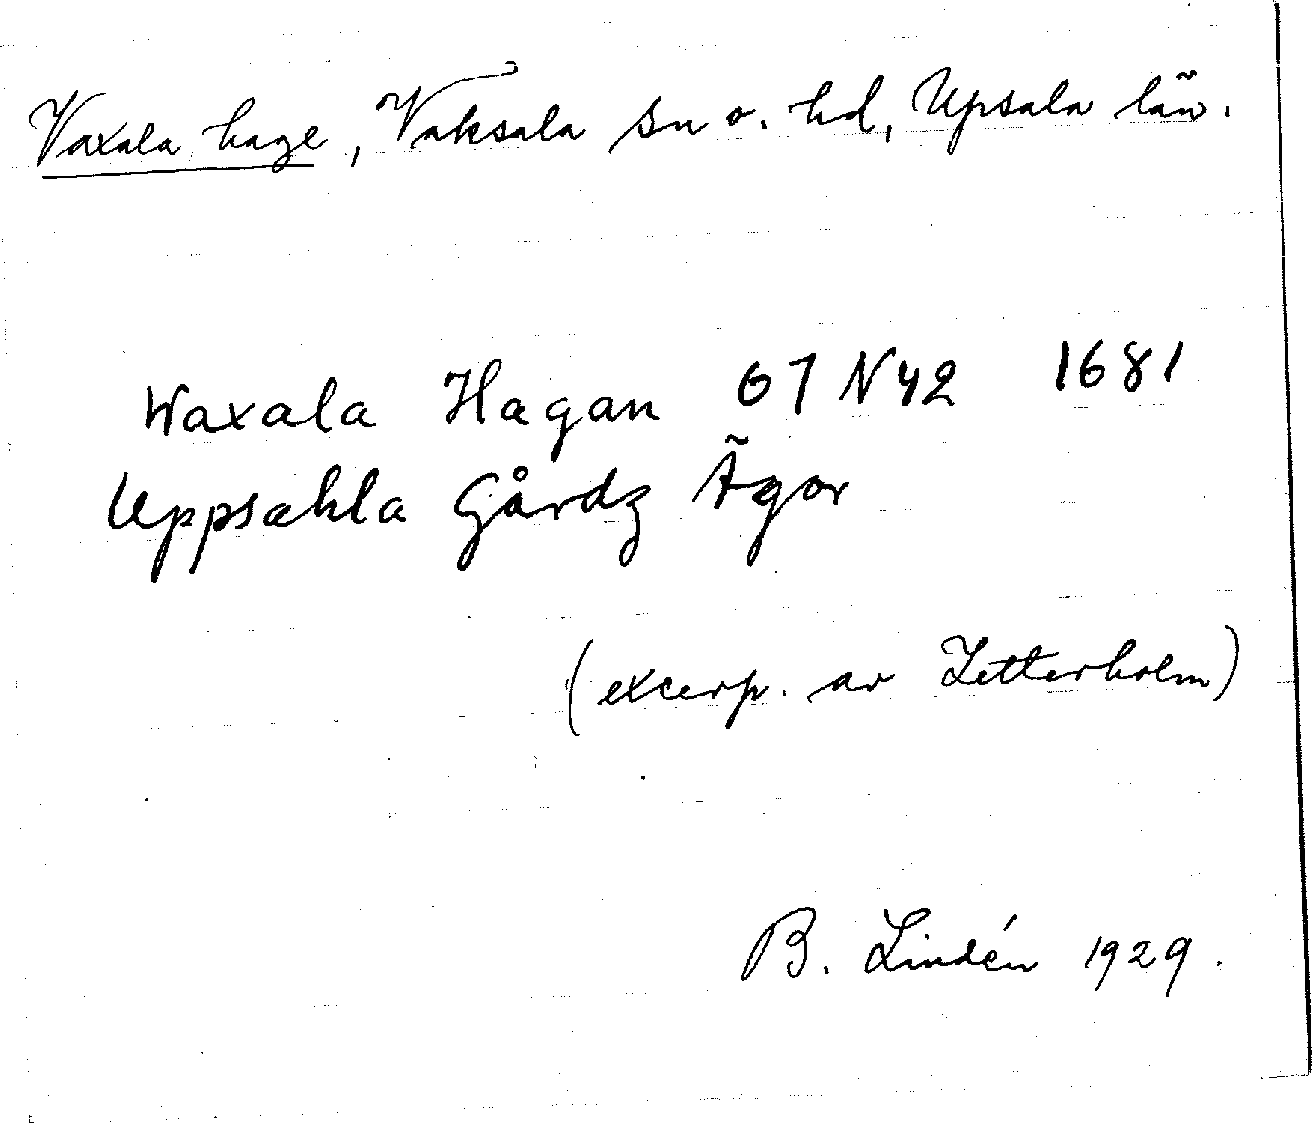 Vaxala hage, Vaksala sn o. hd, Upsala län.
Waxala Hagan 67 N42 1681
Uppsahla Gårdz Ägor
(excerp. av Zetterholm)
B. Lindén 1929.